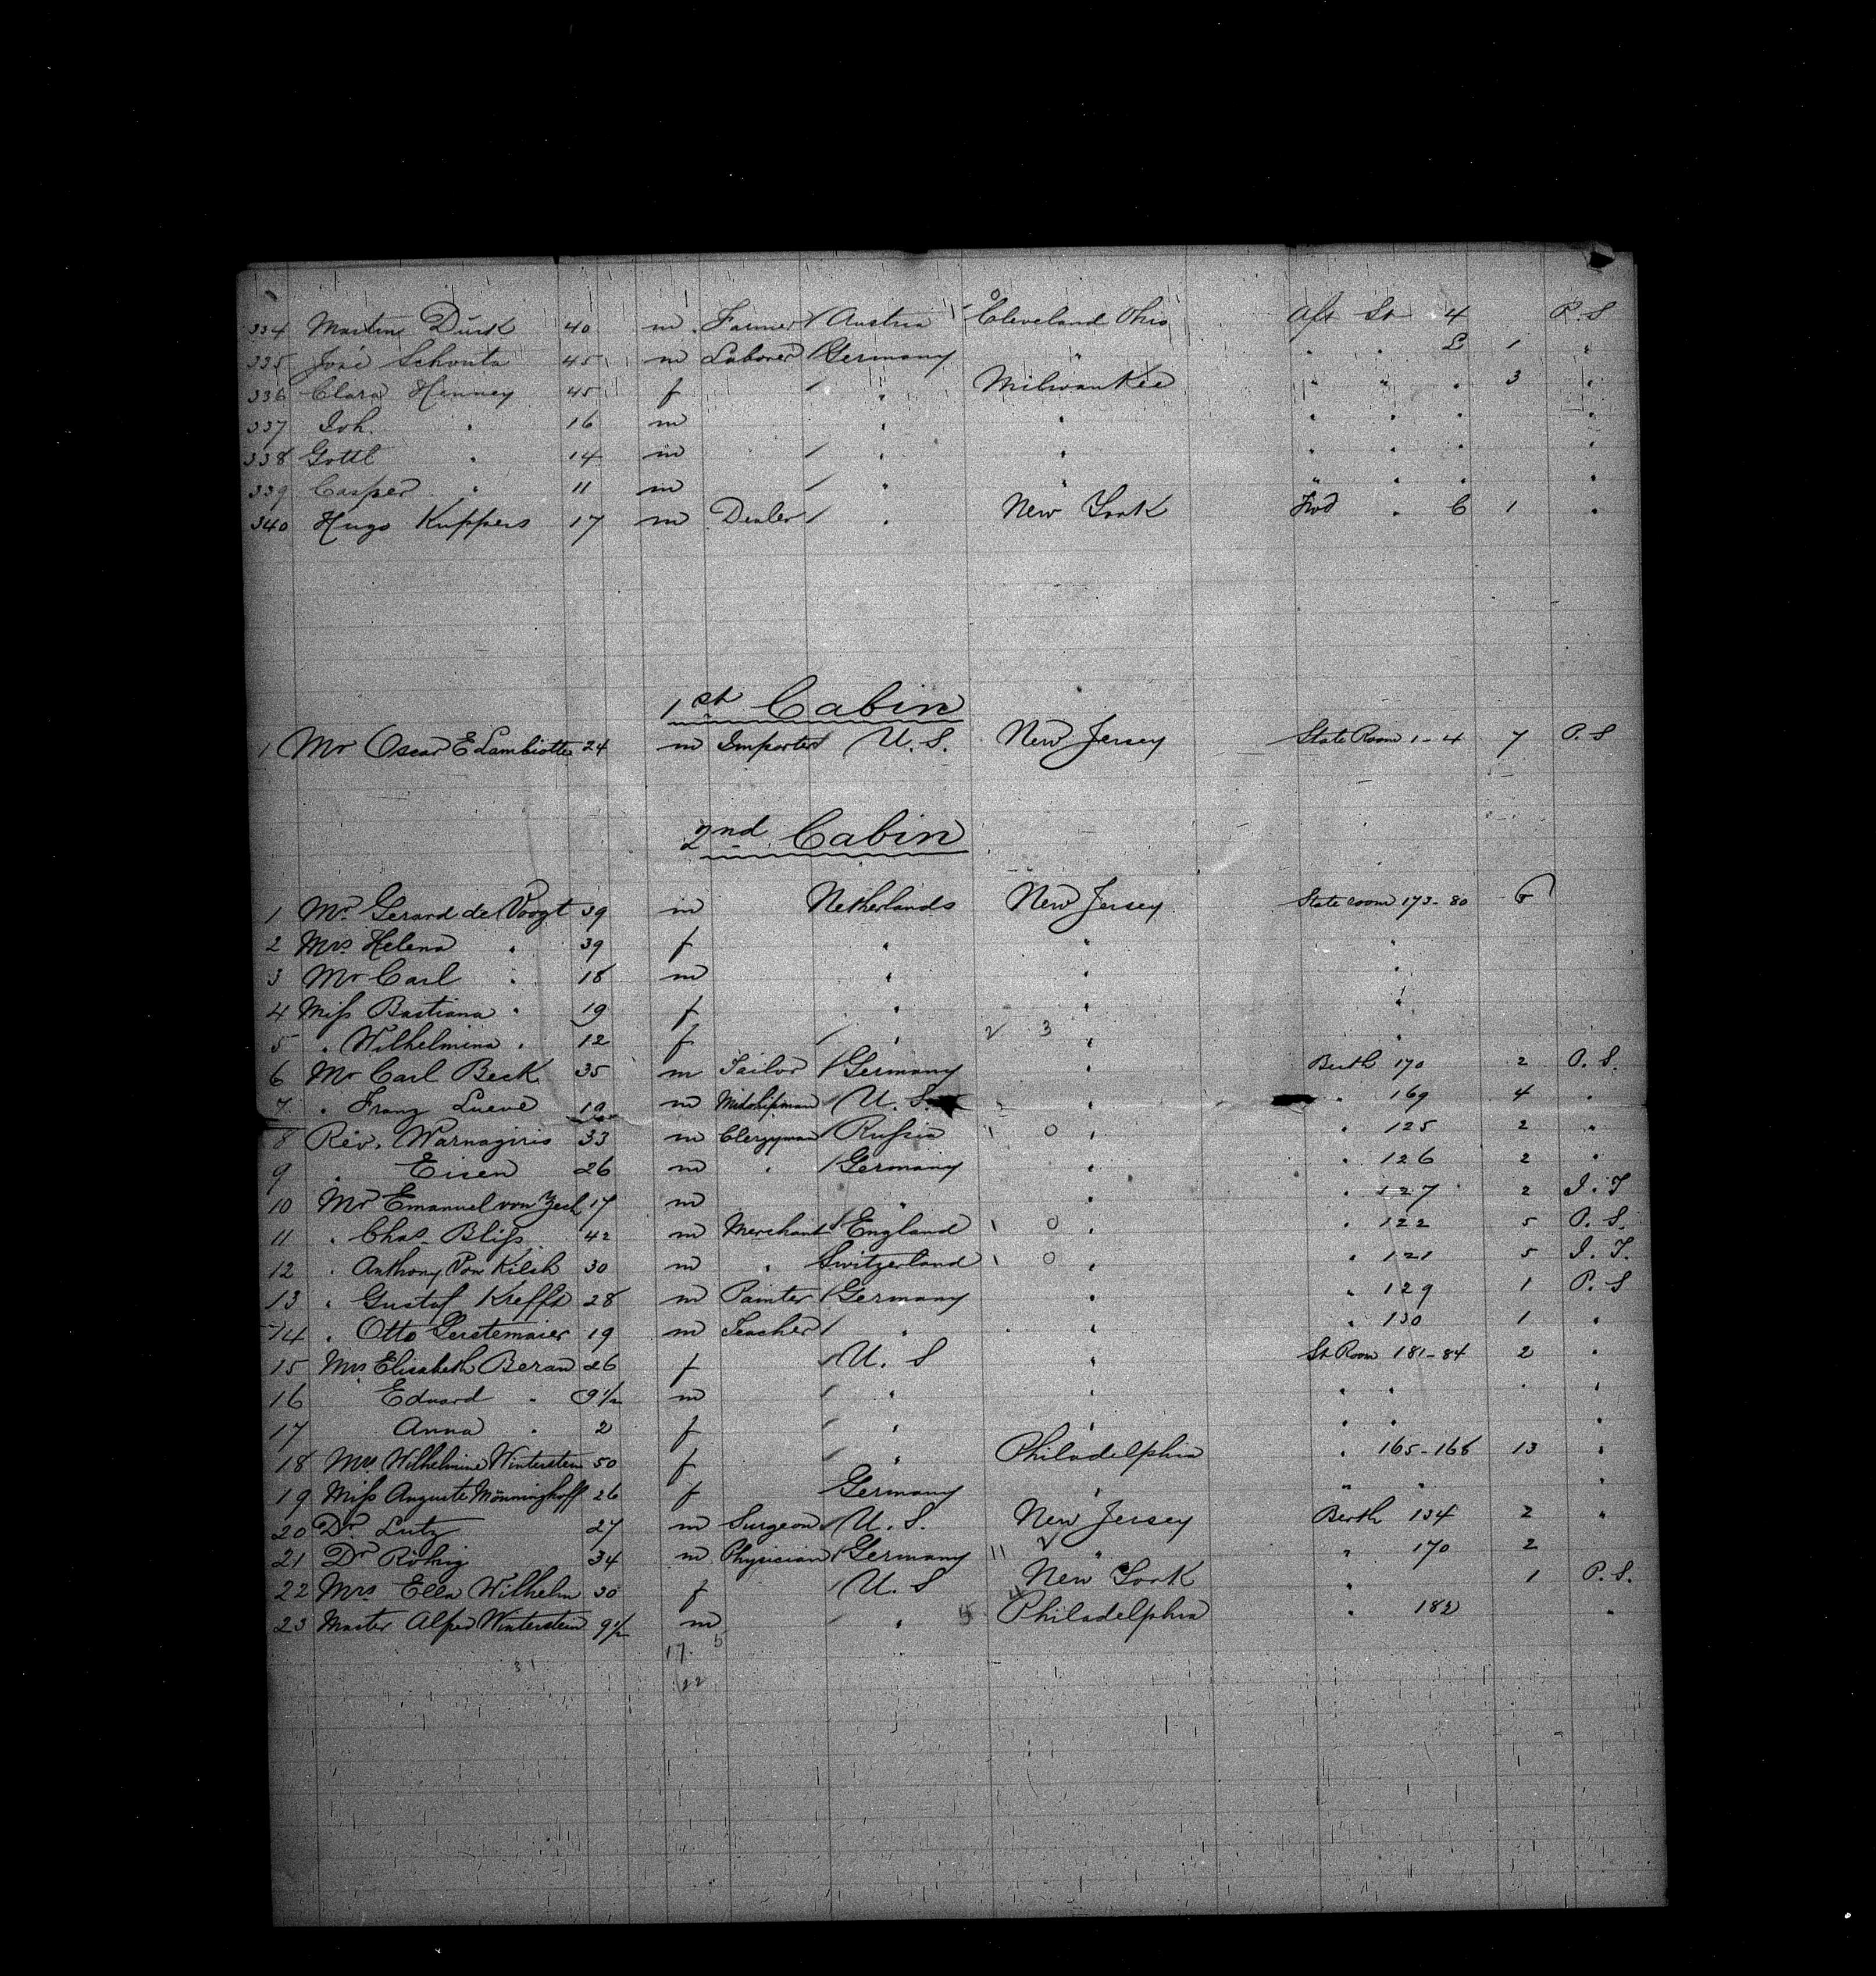 334 Martin Durk 40 m Farmer Austria Cleveland Ohio Aft St 4 P.S
335 José Schonta 45 m Laborer Germany " " " L 1 "
336 Clara Henney 45 f " Milwaukee " " " 3 "
337 Joh. " 16 m " " " " " "
338 Gottl " 14 m " " " " " "
339 Casper " 11 m " " " " " "
340 Hugo Kuppers 17 m Dealer " New York Fwd " C 1 "
1st Cabin
1 Mr Oscar E Lambiotte 24 m Importer U.S. New Jersey State Room 1-4 7 P.S
2nd Cabin
1 Mr. Gerard de Voogt 39 m Netherlands New Jersey State room 173-80 6
2 Mrs Helena " 39 f " " "
3 Mr Carl " 18 m " " "
4 Miss Bastiana " 19 f " " "
5 " Wilhelmina " 12 f " 2 3 " "
6 Mr Carl Beck 35 m Tailor Germany " Berth 170 2 P.S.
7 " Franz Lueve 19 m Midshipman U.S. " " 169 4 "
8 Rev. Warnagiris 33 m Clergyman Russia 0 " " 125 2 "
9 " Eisen 26 m " Germany " " 126 2 "
10 Mr Emanuel von Zech 17 m " " " 127 2 I.T
11 " Chas. Bliss 42 m Merchant England 0 " " 122 5 P.S.
12 " Anthony Von Kilch 30 m " Switzerland 0 " " 121 5 I.T.
13 " Gustaf Krefft 28 m Painter Germany " " 129 1 P.S
14 " Otto Gerstemaier 19 m Teacher " " " 130 1 "
15 Mrs Elisabeth Beran 26 f U.S " St Room 181-84 2 "
16 Eduard " 9½ m " " " " " "
17 Anna " 2 f " " " " "
18 Mrs Wilhelmine Winterstein 50 f " Philadelphia " 165-168 13 "
19 Miss Auguste Mönninghoff 26 f Germany " " " "
20 Dr. Lutz 27 m Surgeon U.S. New Jersey Berth 134 2 "
21 Dr Röhrig 34 m Physician Germany " " 170 2
22 Mrs Ella Wilhelm 30 f U.S New York " 1 P.S.
23 Master Alfred Winterstein 9½ m " Philadelphia " 182 "
17 5
22